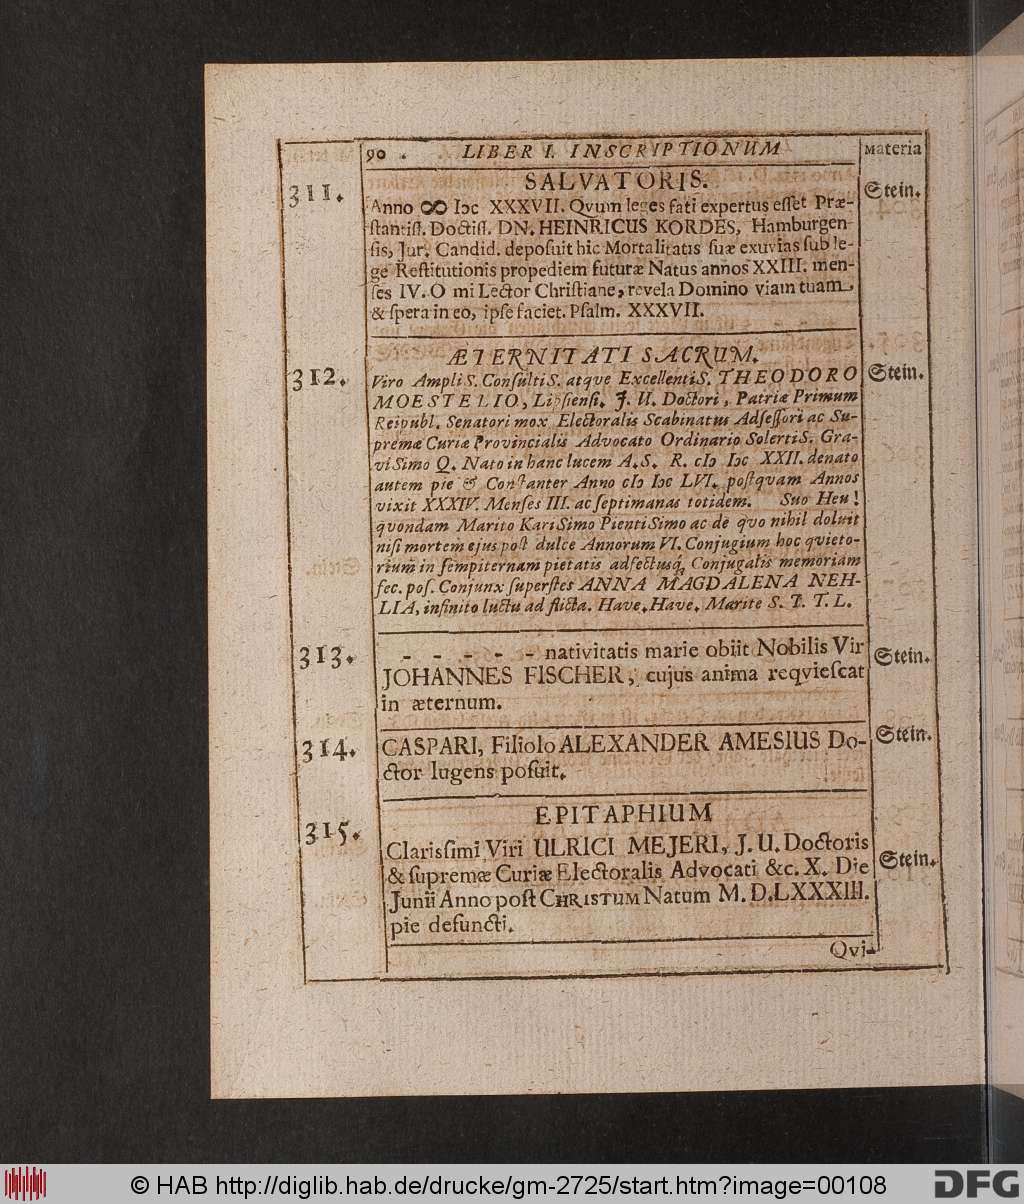 90 . LIBER I. INSCRIPTIONUM Materia
311. SALVATORIS. Stein.
Anno ∞ Iↄc XXXVII. Qvum leges fati expertus eſſet Præ-
ſtantiſſ. Doctiſſ. DN. HEINRICUS KORDES, Hamburgen-
ſis, Jur. Candid. depoſuit hic Mortalitatis ſuæ exuvias ſub le-
ge Reſtitutionis propediem futuræ Natus annos XXIII. men-
ſes IV. O mi Lector Chriſtiane, revela Domino viam tuam,
& ſpera in eo, ipſe faciet. Pſalm. XXXVII.
312. ÆTERNITATI SACRUM. Stein.
Viro AmpliS. ConſultiS. atqve ExcellentiS. THEODORO
MOESTELIO, Lipſienſi. J. U. Doctori, Patriæ Primum
Reipubl. Senatori mox Electoralis Scabinatus Adſeſſori ac Su-
premæ Curiæ Provincialis Advocato Ordinario SolertiS. Gra-
viSimo Q. Nato in hanc lucem A. S. R. cIↄ Iↄc XXII. denato
autem pie & Conſtanter Anno cIↄ Iↄc LVI. poſtquam Annos
vixit XXXIV. Menſes III. ac ſeptimanas totidem. Suo Heu!
qvondam Marito KariSimo PientiSimo ac de qvo nihil doluit
niſi mortem ejus poſt dulce Annorum VI. Conjugium hoc qvieto-
rium in ſempiternam pietatis adfectusq́; Conjugalis memoriam
fec. poſ. Conjunx ſuperſtes ANNA MAGDALENA NEH-
LIA, infinito luctu ad flicta. Have. Have. Marite S. T. T. L.
313. - - - - - nativitatis marie obiit Nobilis Vir Stein.
JOHANNES FISCHER, cujus anima reqvieſcat
in æternum.
314. CASPARI, Filiolo ALEXANDER AMESIUS Do- Stein.
ctor lugens poſuit.
315. EPITAPHIUM
Clarisſimi Viri ULRICI MEJERI, J. U. Doctoris Stein.
& ſupremæ Curiæ Electoralis Advocati &c. X. Die
Junii Anno poſt CHRISTUM Natum M. D. LXXXIII.
pie defuncti.
Qvi-
© HAB http://diglib.hab.de/drucke/gm-2725/start.htm?image=00108 DFG